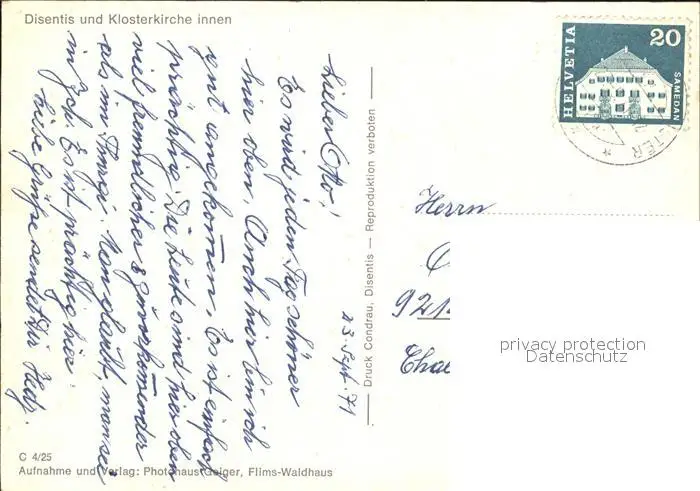 Disentis und Klosterkirche innen
23. Sept. 71
Lieber Otto!
Es wird jeden Tag schöner
hier oben. Auch hier bin ich
gut angekommen. Es ist einfach
prächtig. Die Leute sind hier oben
viel freundlicher & zuvorkommender
als im Thurgi. Man glaubt, man sei
in Zch. Es ist prächtig hier.
Liebe Grüsse sendet Dir Hedy.
C 4/25
Aufnahme und Verlag: Photohaus Geiger, Flims-Waldhaus
Druck Condrau, Disentis — Reproduktion verboten
HELVETIA
20
SAMEDAN
Herrn
O
921
privacy protection
Datenschutz